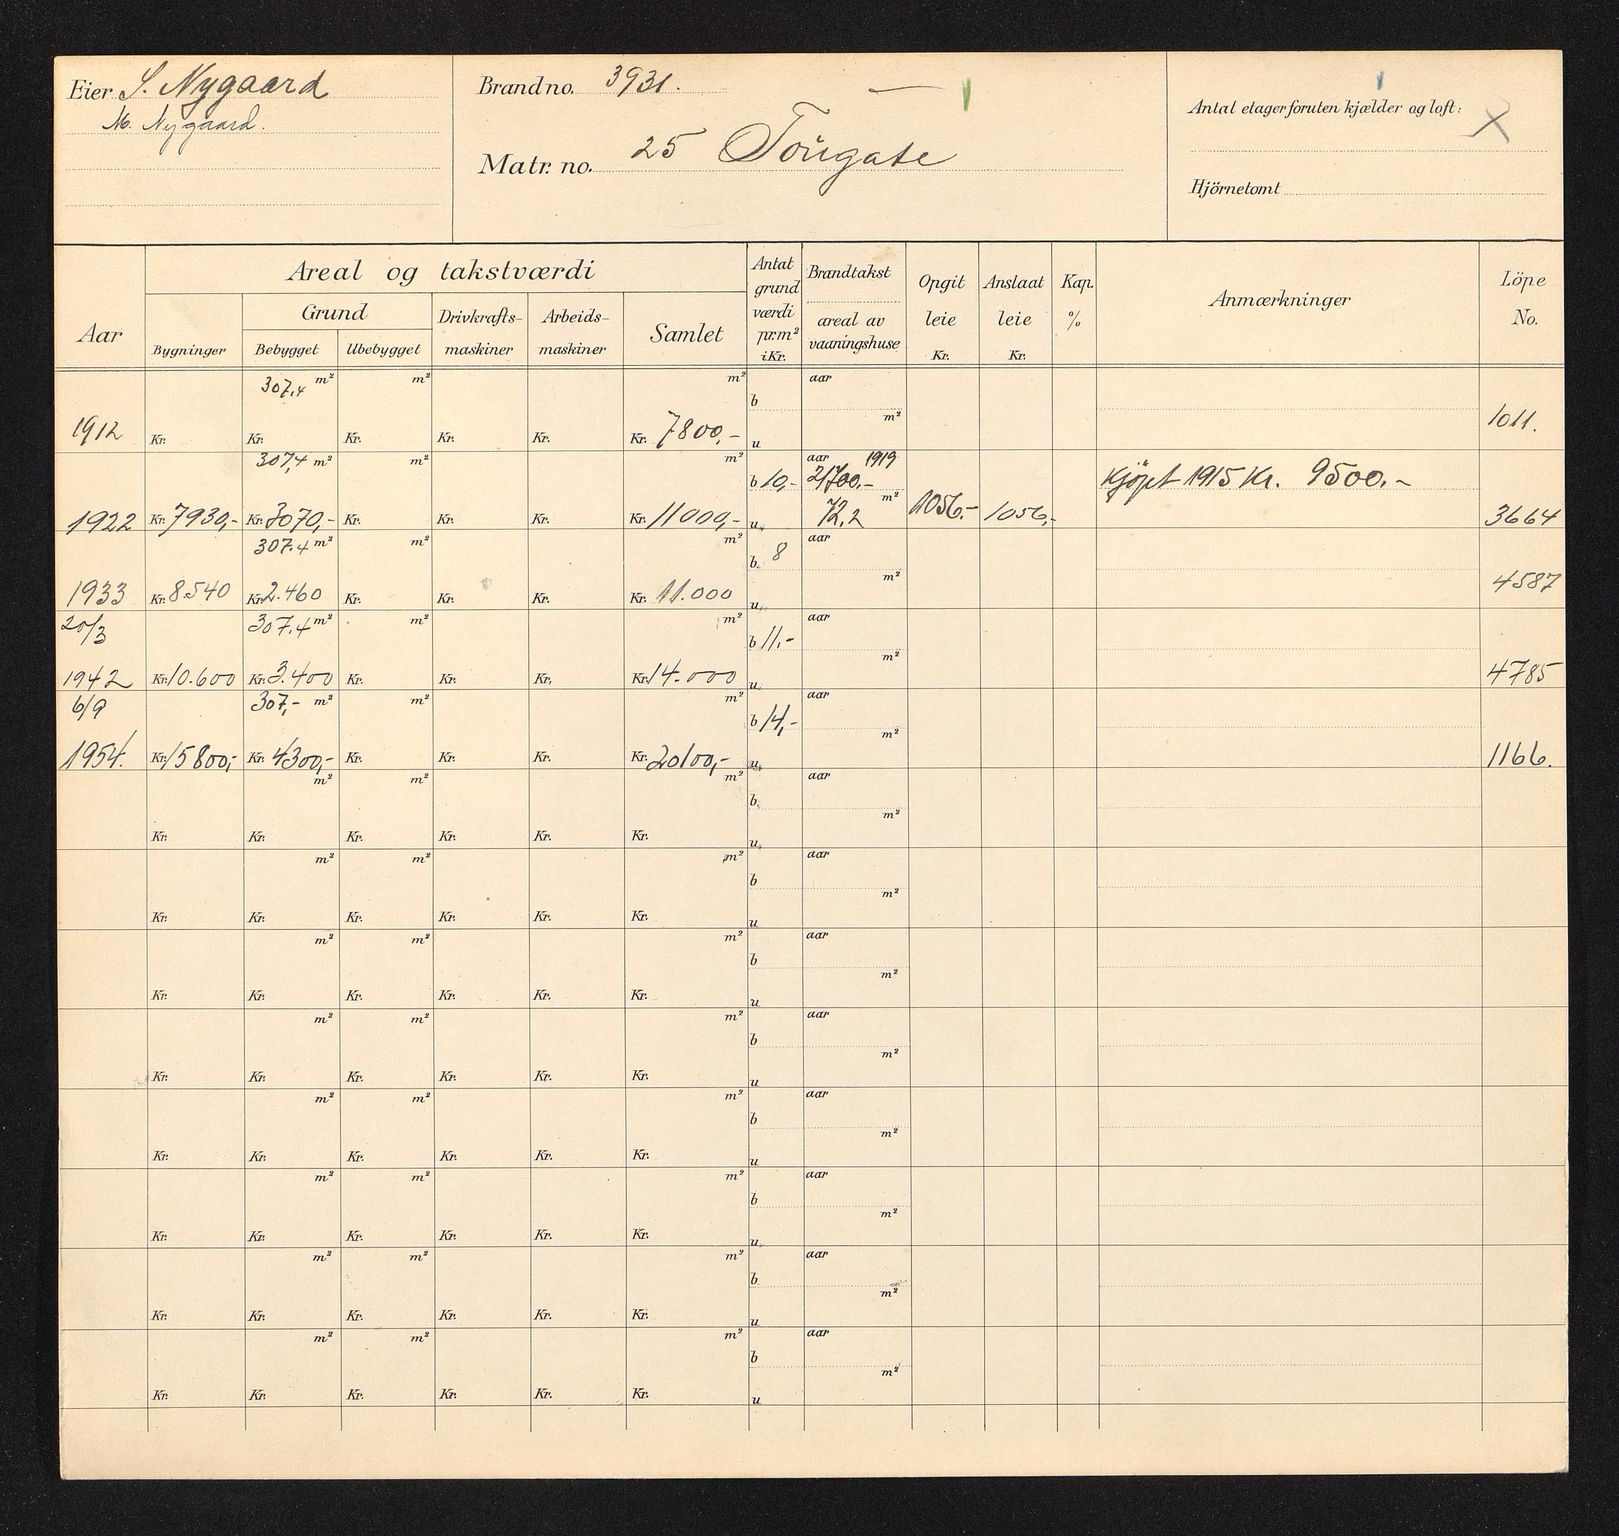 Eier S. Nygaard
M. Nygaard.
Brand no. 3931. —
Matr. no. 25 Tougate
Antal etager foruten kjælder og loft: X
Hjörnetomt
Aar
Areal og takstværdi
Bygninger
Grund
Bebygget Ubebygget
Drivkrafts-maskiner
Arbeids-maskiner
Samlet
Antat grund værdi pr. m² i Kr.
Brandtakst areal av vaaningshuse
Opgit leie Kr.
Anslaat leie Kr.
Kap. %
Anmærkninger
Löpe No.
307,4 m² m² m² aar
b
m²
1912 Kr. Kr. Kr. Kr. Kr. Kr. 7800,- u 1011.
307,4 m² m² m² aar 1919
b 10,- 21700.- Kjöpt 1915 Kr. 9500.-
m²
1922 Kr. 7930,- Kr. 3070,- Kr. Kr. Kr. Kr. 11000,- u 72,2 1056.- 1056,- 3664
307.4 m² m² m² aar
b. 8
m²
1933 Kr. 8.540 Kr. 2.460 Kr. Kr. Kr. Kr. 11.000 u 4587
20/3 307.4 m² m² m² aar
b 11,-
m²
1942 Kr. 10.600 Kr. 3.400 Kr. Kr. Kr. Kr. 14.000 u 4785
6/9 307,- m² m² m² aar
b 14,-
m²
1954. Kr. 15800,- Kr. 4300,- Kr. Kr. Kr. Kr. 20100,- u 1166.
m² m² m² aar
b
m²
Kr. Kr. Kr. Kr. Kr. Kr. u
m² m² m² aar
b
m²
Kr. Kr. Kr. Kr. Kr. Kr. u
m² m² m² aar
b
m²
Kr. Kr. Kr. Kr. Kr. Kr. u
m² m² m² aar
b
m²
Kr. Kr. Kr. Kr. Kr. Kr. u
m² m² m² aar
b
m²
Kr. Kr. Kr. Kr. Kr. Kr. u
m² m² m² aar
b
m²
Kr. Kr. Kr. Kr. Kr. Kr. u
m² m² m² aar
b
m²
Kr. Kr. Kr. Kr. Kr. Kr. u
m² m² m² aar
b
m²
Kr. Kr. Kr. Kr. Kr. Kr. u